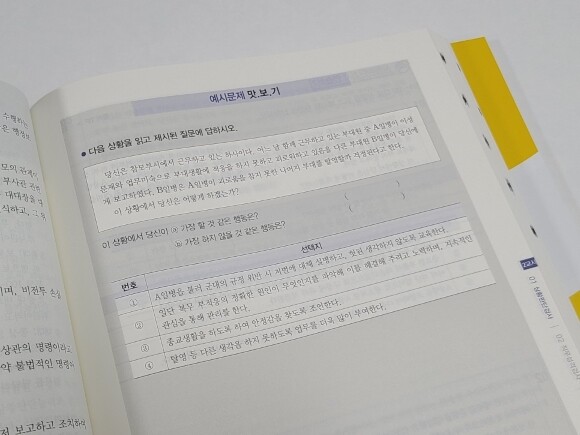 예시문제 맛.보.기
● 다음 상황을 읽고 제시된 질문에 답하시오.
당신은 참모부서에서 근무하고 있는 하사이다. 어느 날 함께 근무하고 있는 부대원 중 A일병이 이성
문제와 업무미숙으로 부대생활에 적응을 하지 못하고 괴로워하고 있음을 다른 부대원 B일병이 당신에
게 보고하였다. B일병은 A일병이 괴로움을 참지 못한 나머지 부대를 탈영할까 걱정된다고 한다.
이 상황에서 당신은 어떻게 하겠는가?
이 상황에서 당신이 ⓐ 가장 할 것 같은 행동은? ( )
ⓑ 가장 하지 않을 것 같은 행동은? ( )
번호 선택지
① A일병을 불러 군대의 규정 위반 시 처벌에 대해 설명하고, 헛된 생각하지 않도록 교육한다.
② 일단 복무 부적응의 정확한 원인이 무엇인지를 파악해 이를 해결해 주려고 노력하며, 지속적인
관심을 통해 관리를 한다.
③ 종교생활을 하도록 하여 안정감을 찾도록 조언한다.
④ 탈영 등 다른 생각을 하지 못하도록 업무를 더욱 많이 부여한다.
2교시
01 상황판단검사
02 직무성격검사
이며, 비전투 손실
상관의 명령이라고
약 불법적인 명령하
보고하고 조치하여